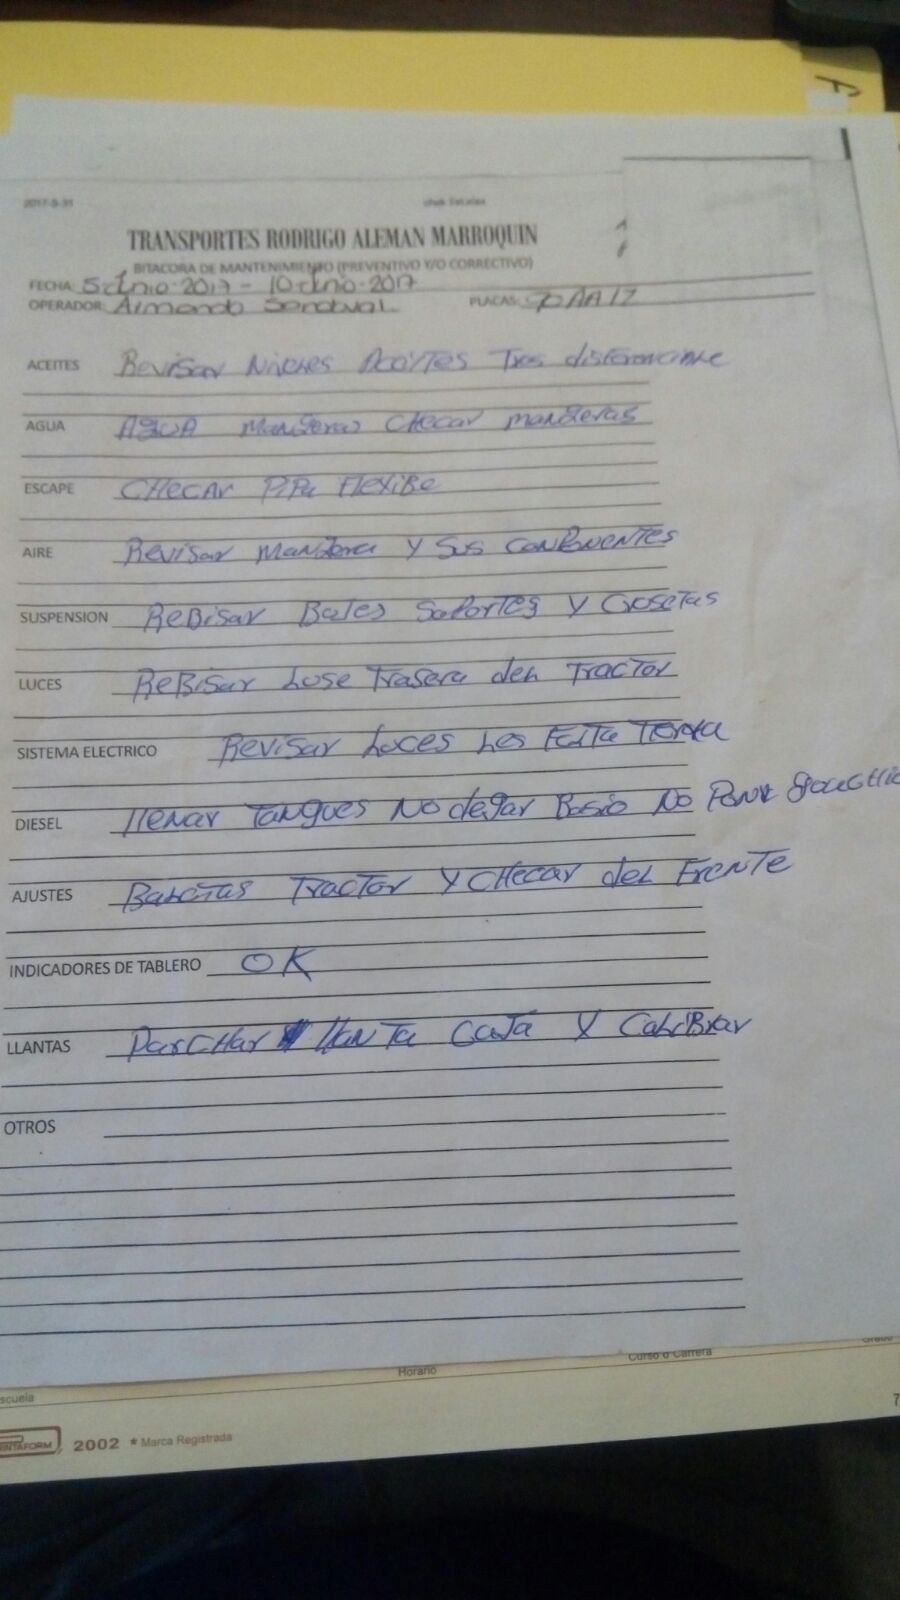 2017-5-31
TRANSPORTES RODRIGO ALEMAN MARROQUIN
BITACORA DE MANTENIMIENTO (PREVENTIVO Y/O CORRECTIVO)
FECHA: 5 Junio-2017 - 10 Junio-2017
OPERADOR: Armando Sandoval PLACAS:
ACEITES Revisar Niveles Aceites Tres
AGUA AgUA Mangeras CHecar mangeras
ESCAPE CHecAr PiPa FlexiBe
AIRE Revisar Mangera Y Sus ConPonenTes
SUSPENSION ReBisar Bujes SoPorTes Y CroseTas
LUCES ReBisar Luse Trasera deL TracTor
SISTEMA ELECTRICO Revisar Luces Les FalTa Tierra
DIESEL llenar Tangues No dejar Basio No Poner
AJUSTES BaLaTas TracTor Y CHecar deL FrenTe
INDICADORES DE TABLERO OK
LLANTAS ParcHar llanTa CaJa Y CaLiBrar
OTROS
Horario
Curso o Carrera
Grado
scuela
7
PRINTAFORM 2002 * Marca Registrada